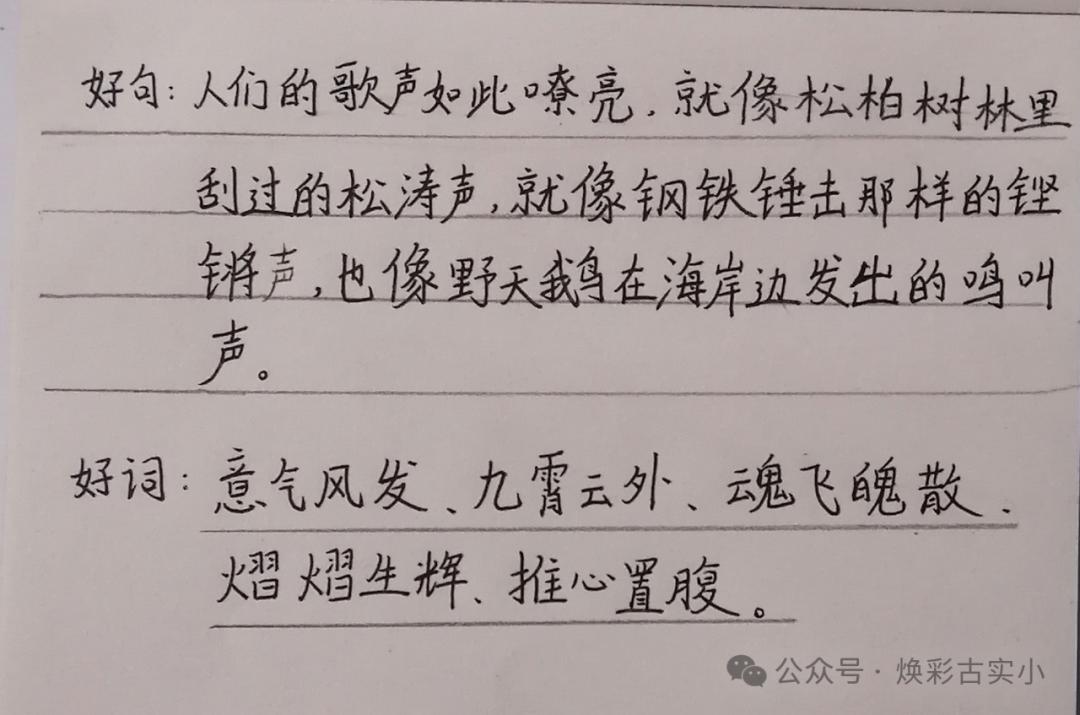 好句：人们的歌声如此嘹亮，就像松柏树林里
刮过的松涛声，就像钢铁锤击那样的铿
锵声，也像野天鹅在海岸边发出的鸣叫
声。
好词：意气风发、九霄云外、魂飞魄散、
熠熠生辉、推心置腹。
公众号·焕彩古实小